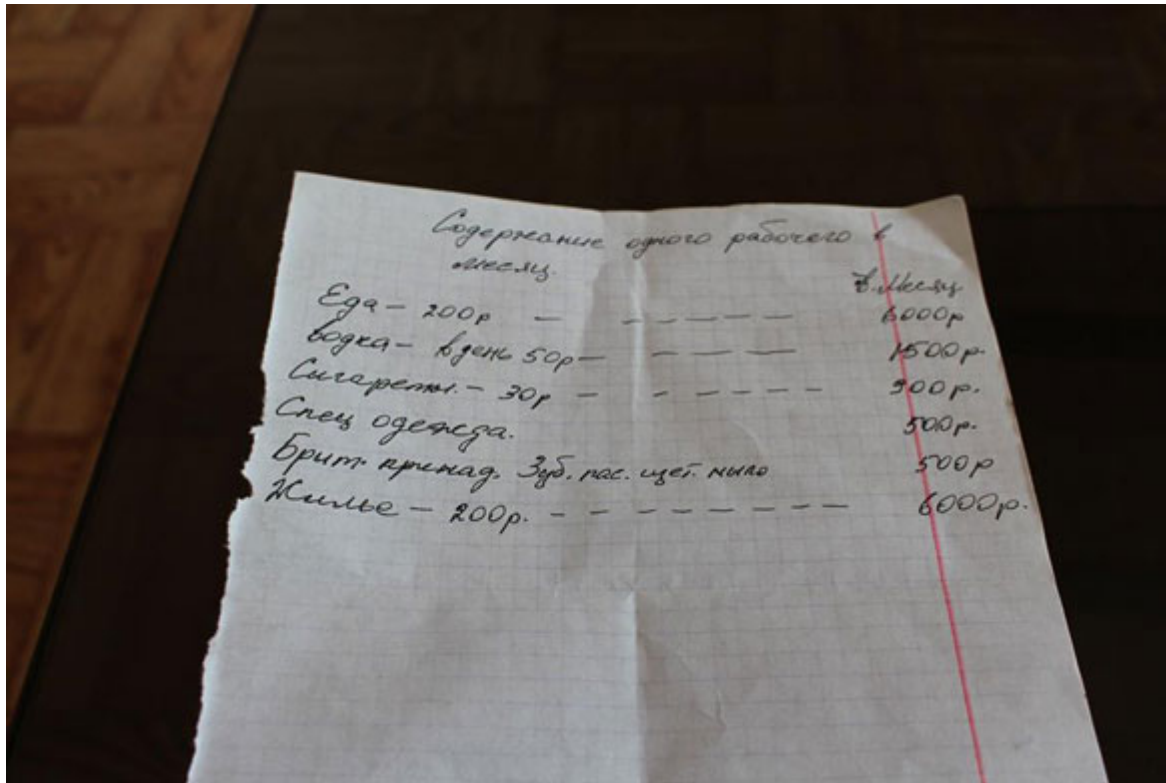 Содержание одного рабочего в
месяц.
в. месяц
Еда – 200р – – – – – – 6000р
водка – в день 50р – – – – – 1500р.
Сигареты. – 30р – – – – – – 900р.
Спец одежда. 500р.
Брит. принад. Зуб. пас. щет. мыло 500р
Жилье – 200р. – – – – – – – – 6000р.